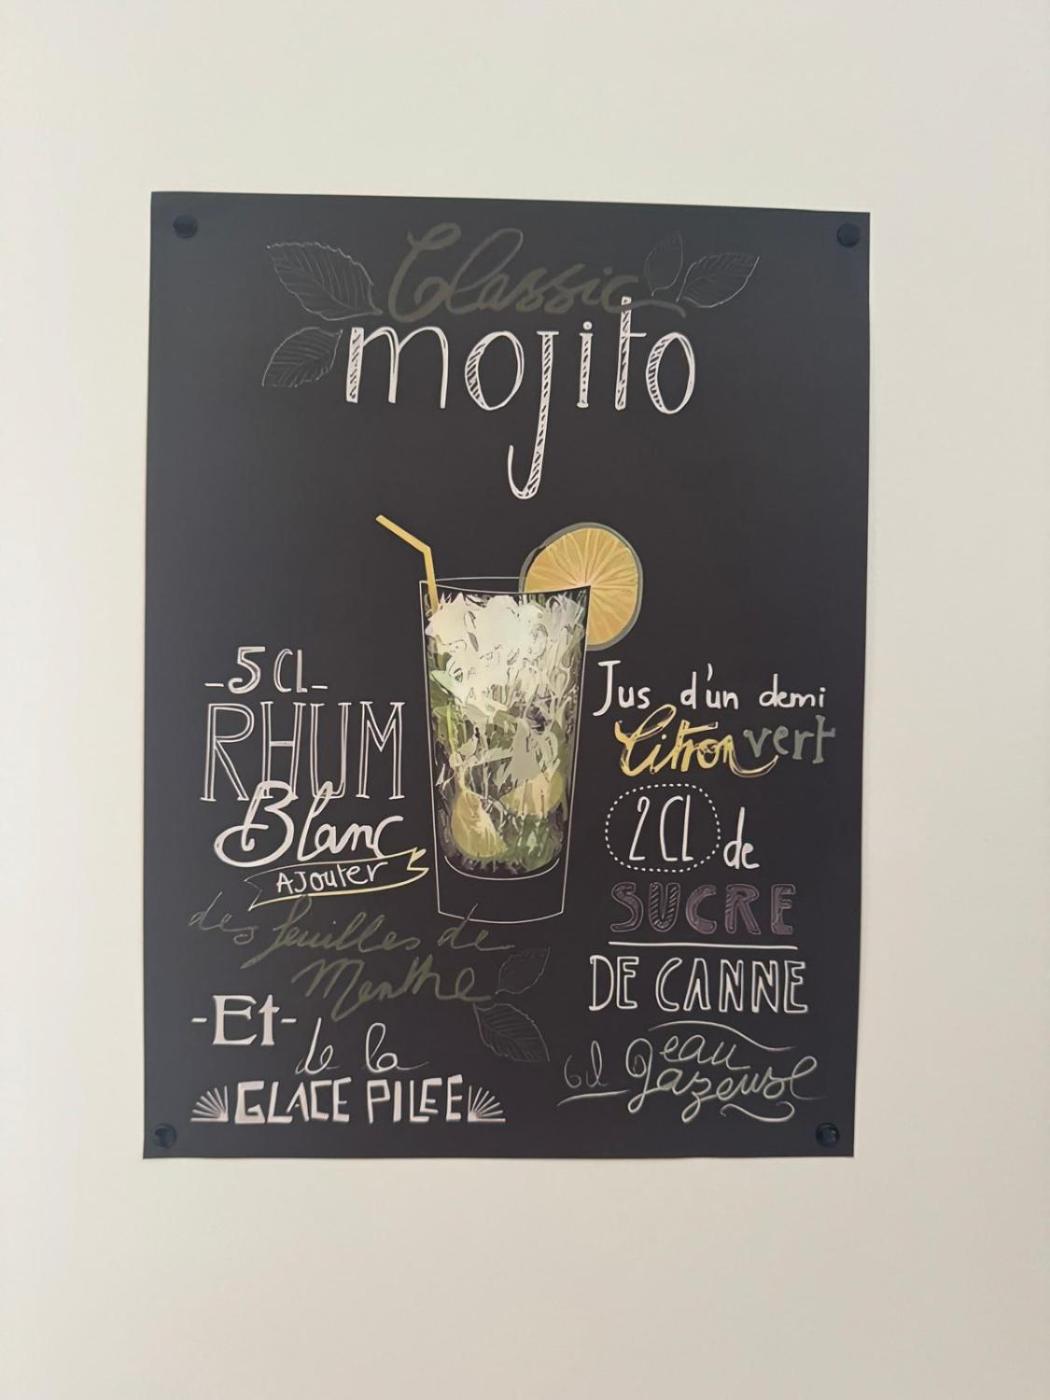 Classic
mojito
_5 CL_
RHUM
Blanc
AJouter
des feuilles de
Menthe
-Et-
de la
GLACE PILEE
Jus d'un demi
Citron vert
2CL de
SUCRE
DE CANNE
6cl eau
gazeuse